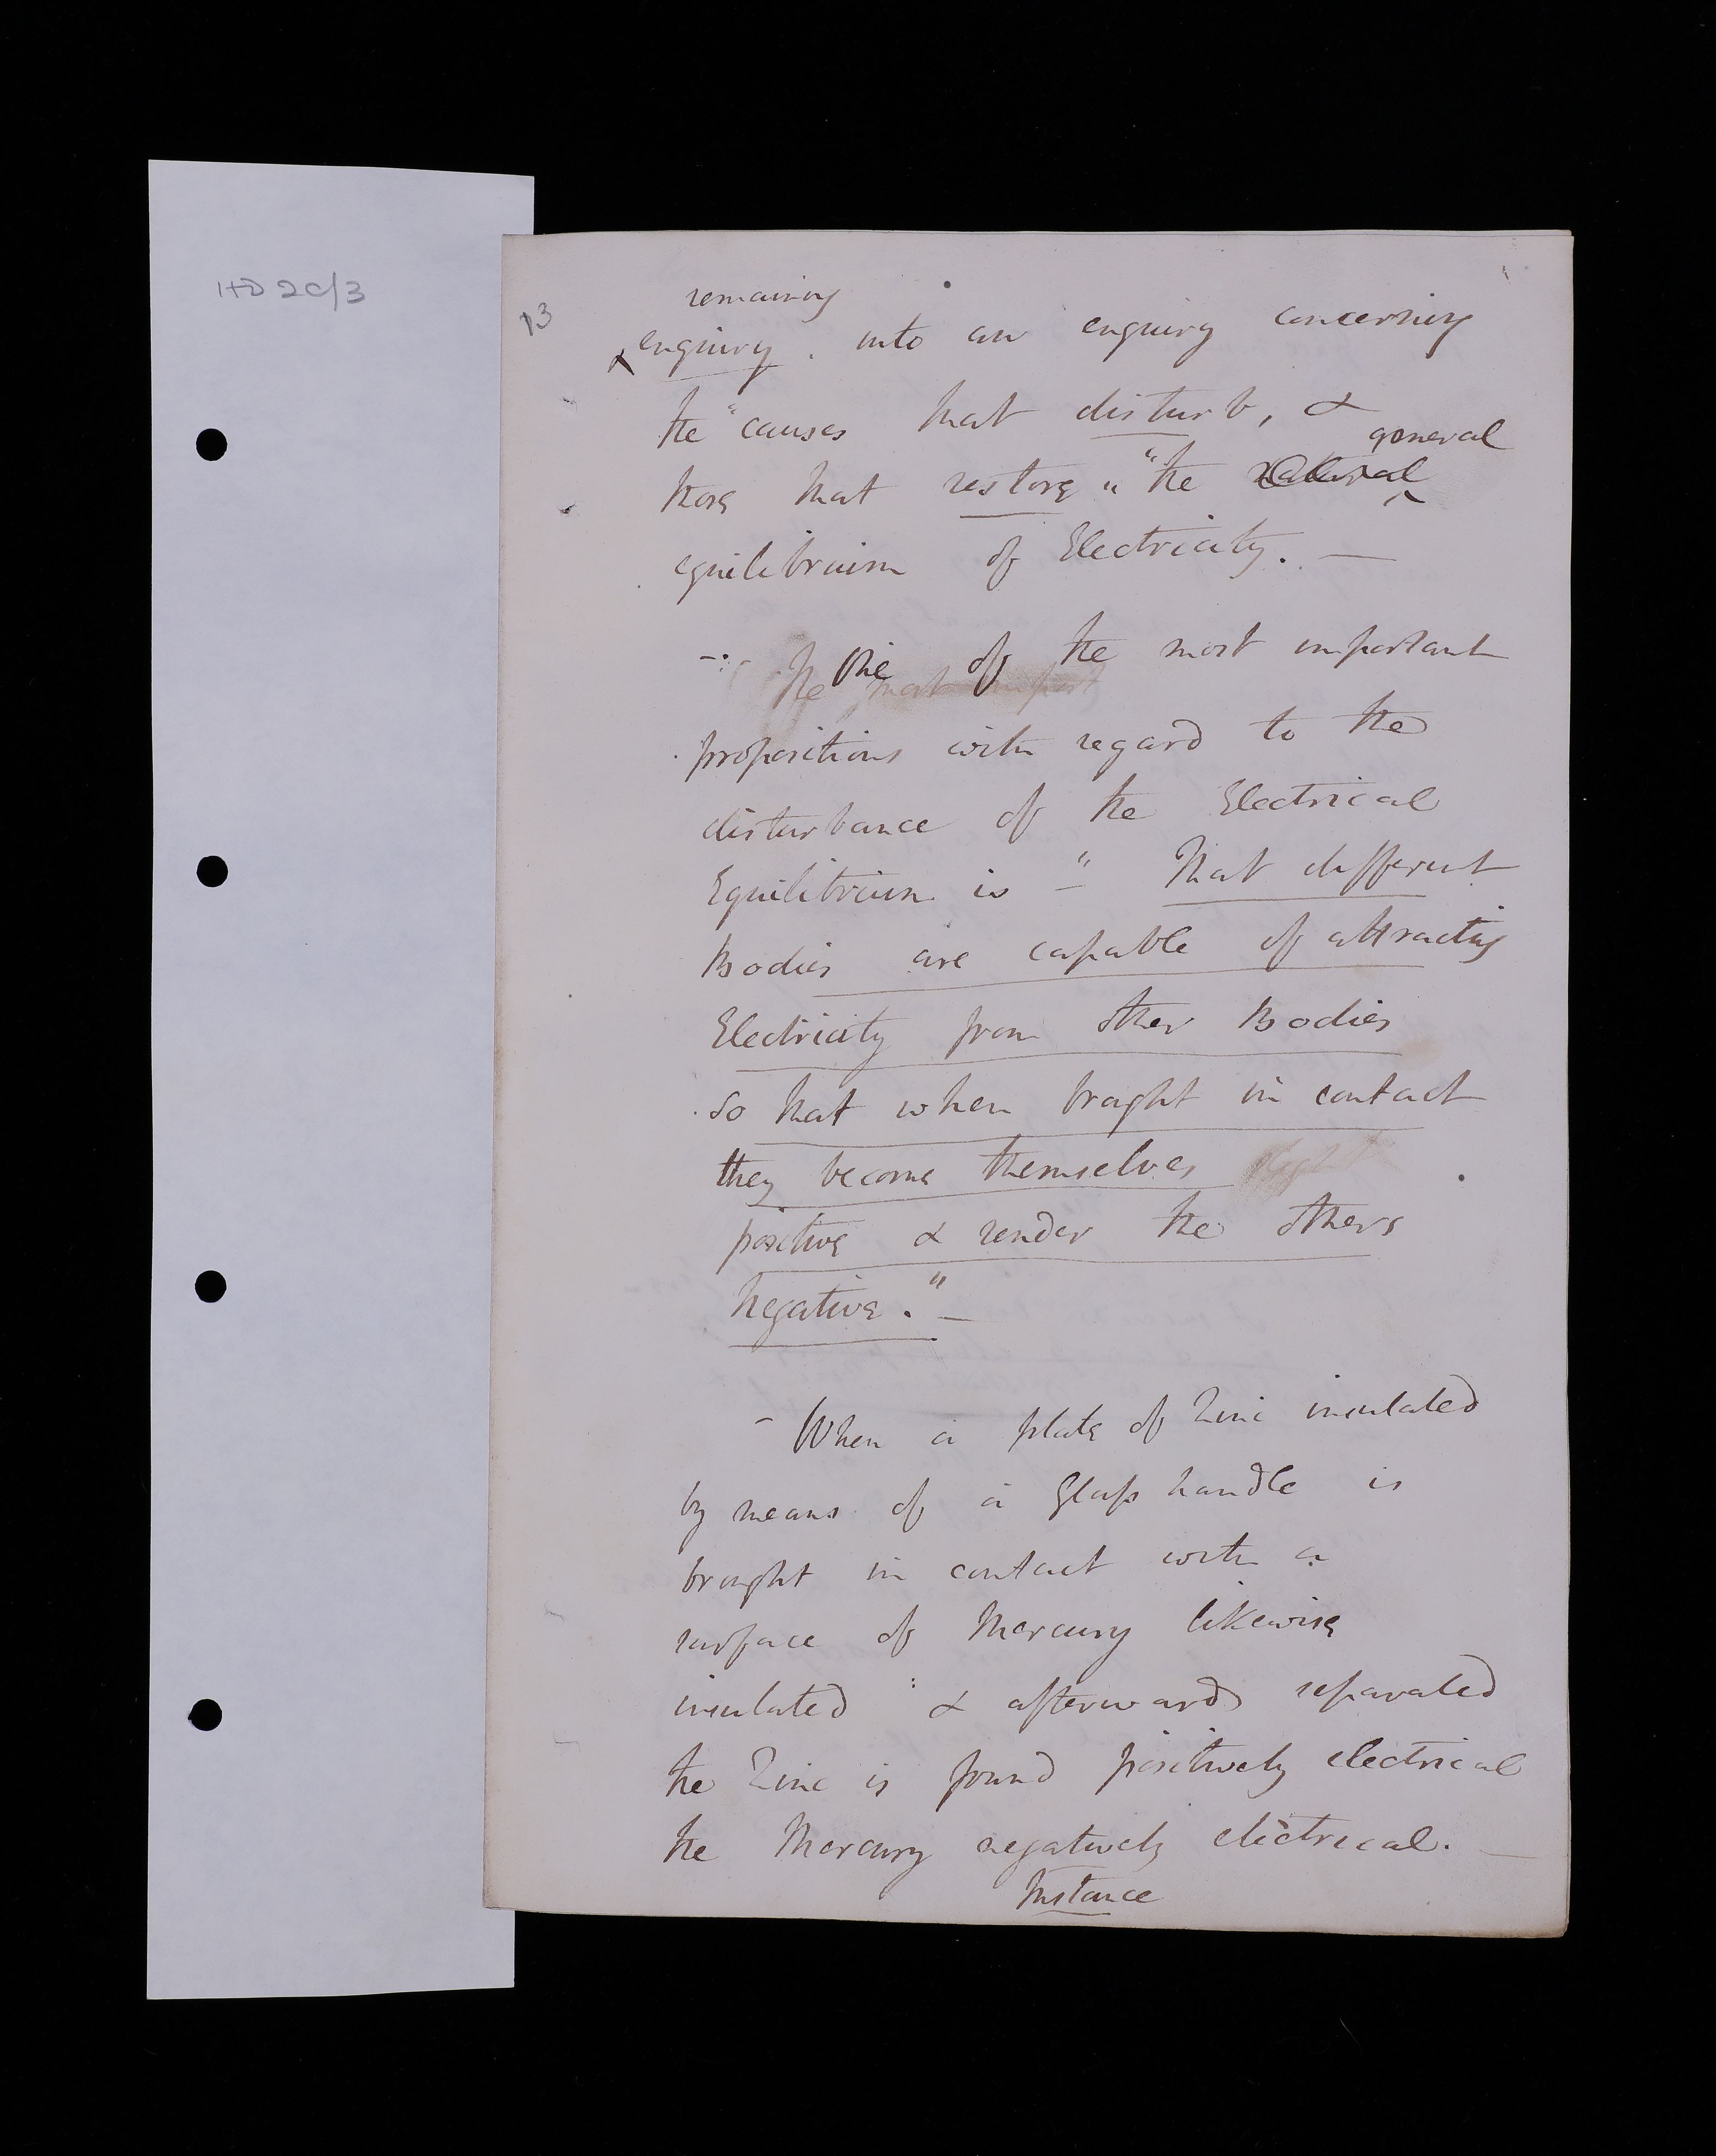 HD 2C/3
13
remaining
enquiry. into an enquiry concerning
the "causes that disturb, &
general
those that restore" "the natural
equilibrium of Electricity. —
One of the most important
The most import
propositions with regard to the
disturbance of the Electrical
Equilibrium is — " That different
Bodies are capable of attracting
Electricity from other Bodies
so that when brought in contact
they become themselves
positive & render the others
negative." —
- When a plate of Zinc insulated
by means of a Glass handle is
brought in contact with a
surface of Mercury likewise
insulated & afterwards separated
the Zinc is found positively electrical
the Mercury negatively electrical. —
Instance